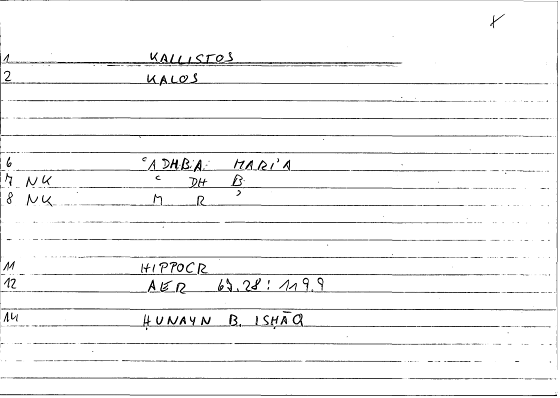 1 KALLISTOS
2 KALOS
6 ʿADHBA MARĪʾA
7 NK ʿ DH B
8 NK M R ʾ
11 HIPPOCR
12 AER 69.28: 119.9
14 ḤUNAYN B. ISḤĀQ